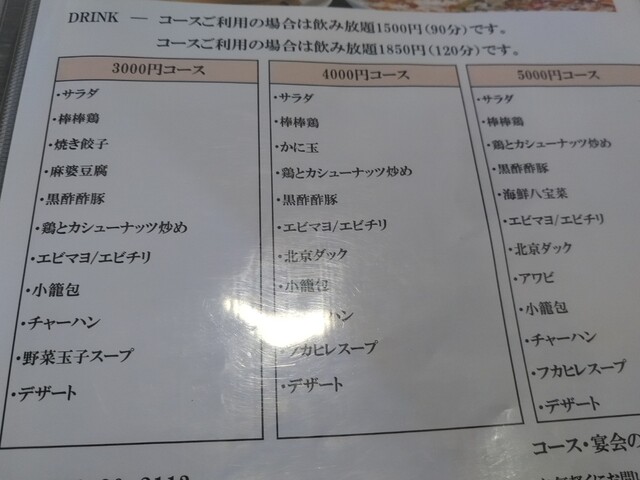 DRINK ― コースご利用の場合は飲み放題1500円（90分）です。
コースご利用の場合は飲み放題1850円（120分）です。
3000円コース
・サラダ
・棒棒鶏
・焼き餃子
・麻婆豆腐
・黒酢酢豚
・鶏とカシューナッツ炒め
・エビマヨ/エビチリ
・小籠包
・チャーハン
・野菜玉子スープ
・デザート
4000円コース
・サラダ
・棒棒鶏
・かに玉
・鶏とカシューナッツ炒め
・黒酢酢豚
・エビマヨ/エビチリ
・北京ダック
・小籠包
ハン
フカヒレスープ
・デザート
5000円コース
・サラダ
・棒棒鶏
・鶏とカシューナッツ炒め
・黒酢酢豚
・海鮮八宝菜
・エビマヨ/エビチリ
・北京ダック
・アワビ
・小籠包
・チャーハン
・フカヒレスープ
・デザート
コース・宴会の